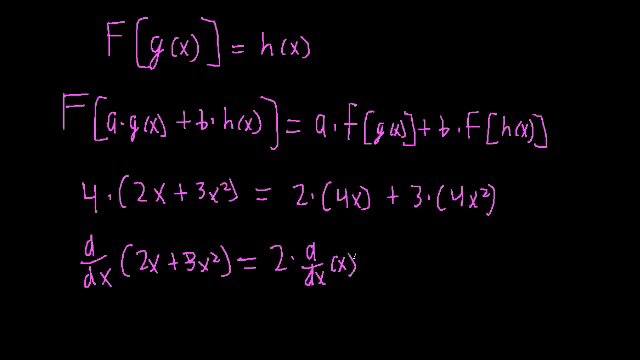 F[g(x)] = h(x)
F[a·g(x) + b·h(x)] = a·F[g(x)] + b·F[h(x)]
4·(2x + 3x²) = 2·(4x) + 3·(4x²)
d/dx (2x + 3x²) = 2·d/dx (x)